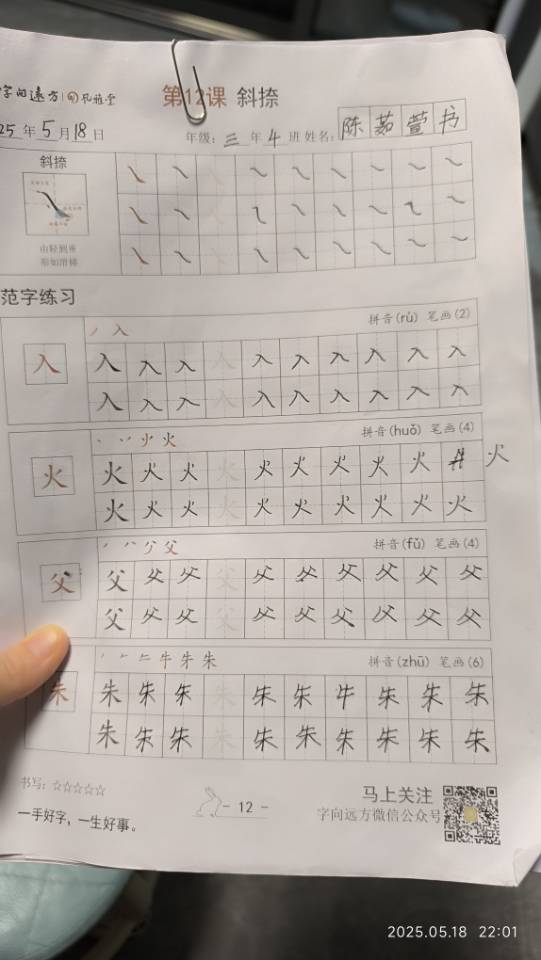 字向远方 孔雅堂
第12课 斜捺
25年5月18日
年级：三年4班 姓名：陈茹萱书
斜捺
由轻到重
形如滑梯
范字练习
拼音(rù) 笔画(2)
入
入 入 入 入 入 入 入 入 入 入
入 入 入 入 入 入 入 入 入 入
拼音(huǒ) 笔画(4)
火
火 火 火 火 火 火 火 火 火 火
火 火 火 火 火 火 火 火 火 火
拼音(fǔ) 笔画(4)
父
父 父 父 父 父 父 父 父 父 父
父 父 父 父 父 父 父 父 父 父
拼音(zhū) 笔画(6)
朱
朱 朱 朱 朱 朱 朱 牛 朱 朱 朱
朱 朱 朱 朱 朱 朱 朱 朱 朱 朱
书写：☆☆☆☆☆
一手好字，一生好事。
- 12 -
马上关注
字向远方微信公众号
2025.05.18 22:01